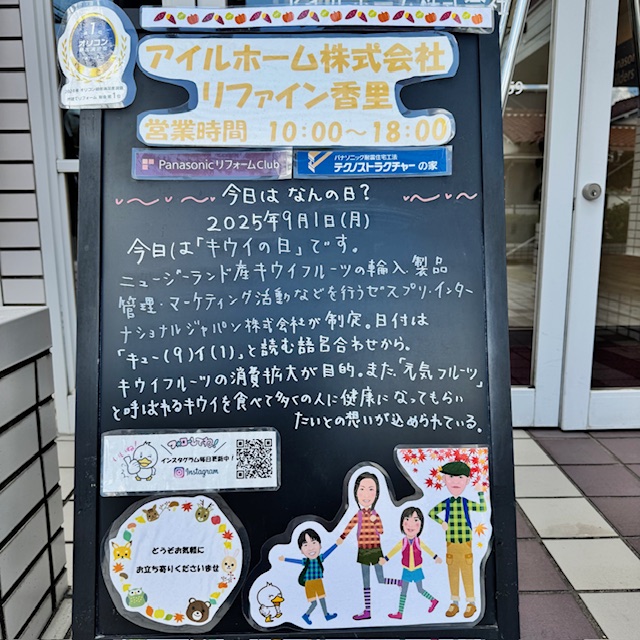 No.1
オリコン
アイルホーム株式会社
リファイン香里
営業時間 10:00～18:00
Panasonic リフォームClub
パナソニック耐震住宅工法
テクノストラクチャーの家
59
今日は なんの日?
2025年9月1日(月)
今日は「キウイの日」です。
ニュージーランド産キウイフルーツの輸入製品
管理・マーケティング活動などを行うゼスプリ・インター
ナショナルジャパン株式会社が制定。日付は
「キュー(9)イ(1)」と読む語呂合わせから。
キウイフルーツの消費拡大が目的。また、「元気フルーツ」
と呼ばれるキウイを食べて多くの人に健康になってもらい
たいとの想いが込められている。
いいね!
フォローしてね!
インスタグラム毎日更新中!
Instagram
どうぞお気軽に
お立ち寄りくださいませ